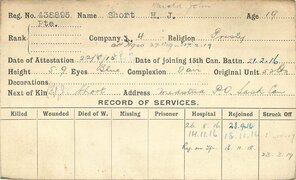 Harold John
Reg. No. 438895 Name Short H. J. Age 19
Rank Pte. Company 4 Religion
Date of Attestation 22/9/15 Date of joining 15th Can. Battn. 21.2.16
Height 5 9 Eyes Blue Complexion Fair Original Unit 52nd
Decorations
Next of Kin Short Address P.O. Sask Ca
RECORD OF SERVICES.
Killed Wounded Died of W. Missing Prisoner Hospital Rejoined Struck Off
26.8.16 28.9.16
14.11.16 15.11.16
23.2.19